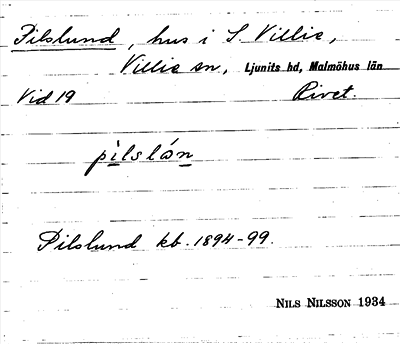 Pilslund, hus i S. Villie,
Villie sn, Ljunits hd, Malmöhus län
Vid 19 Rivet.
pìlslán
Pilslund kb. 1894-99.
NILS NILSSON 1934